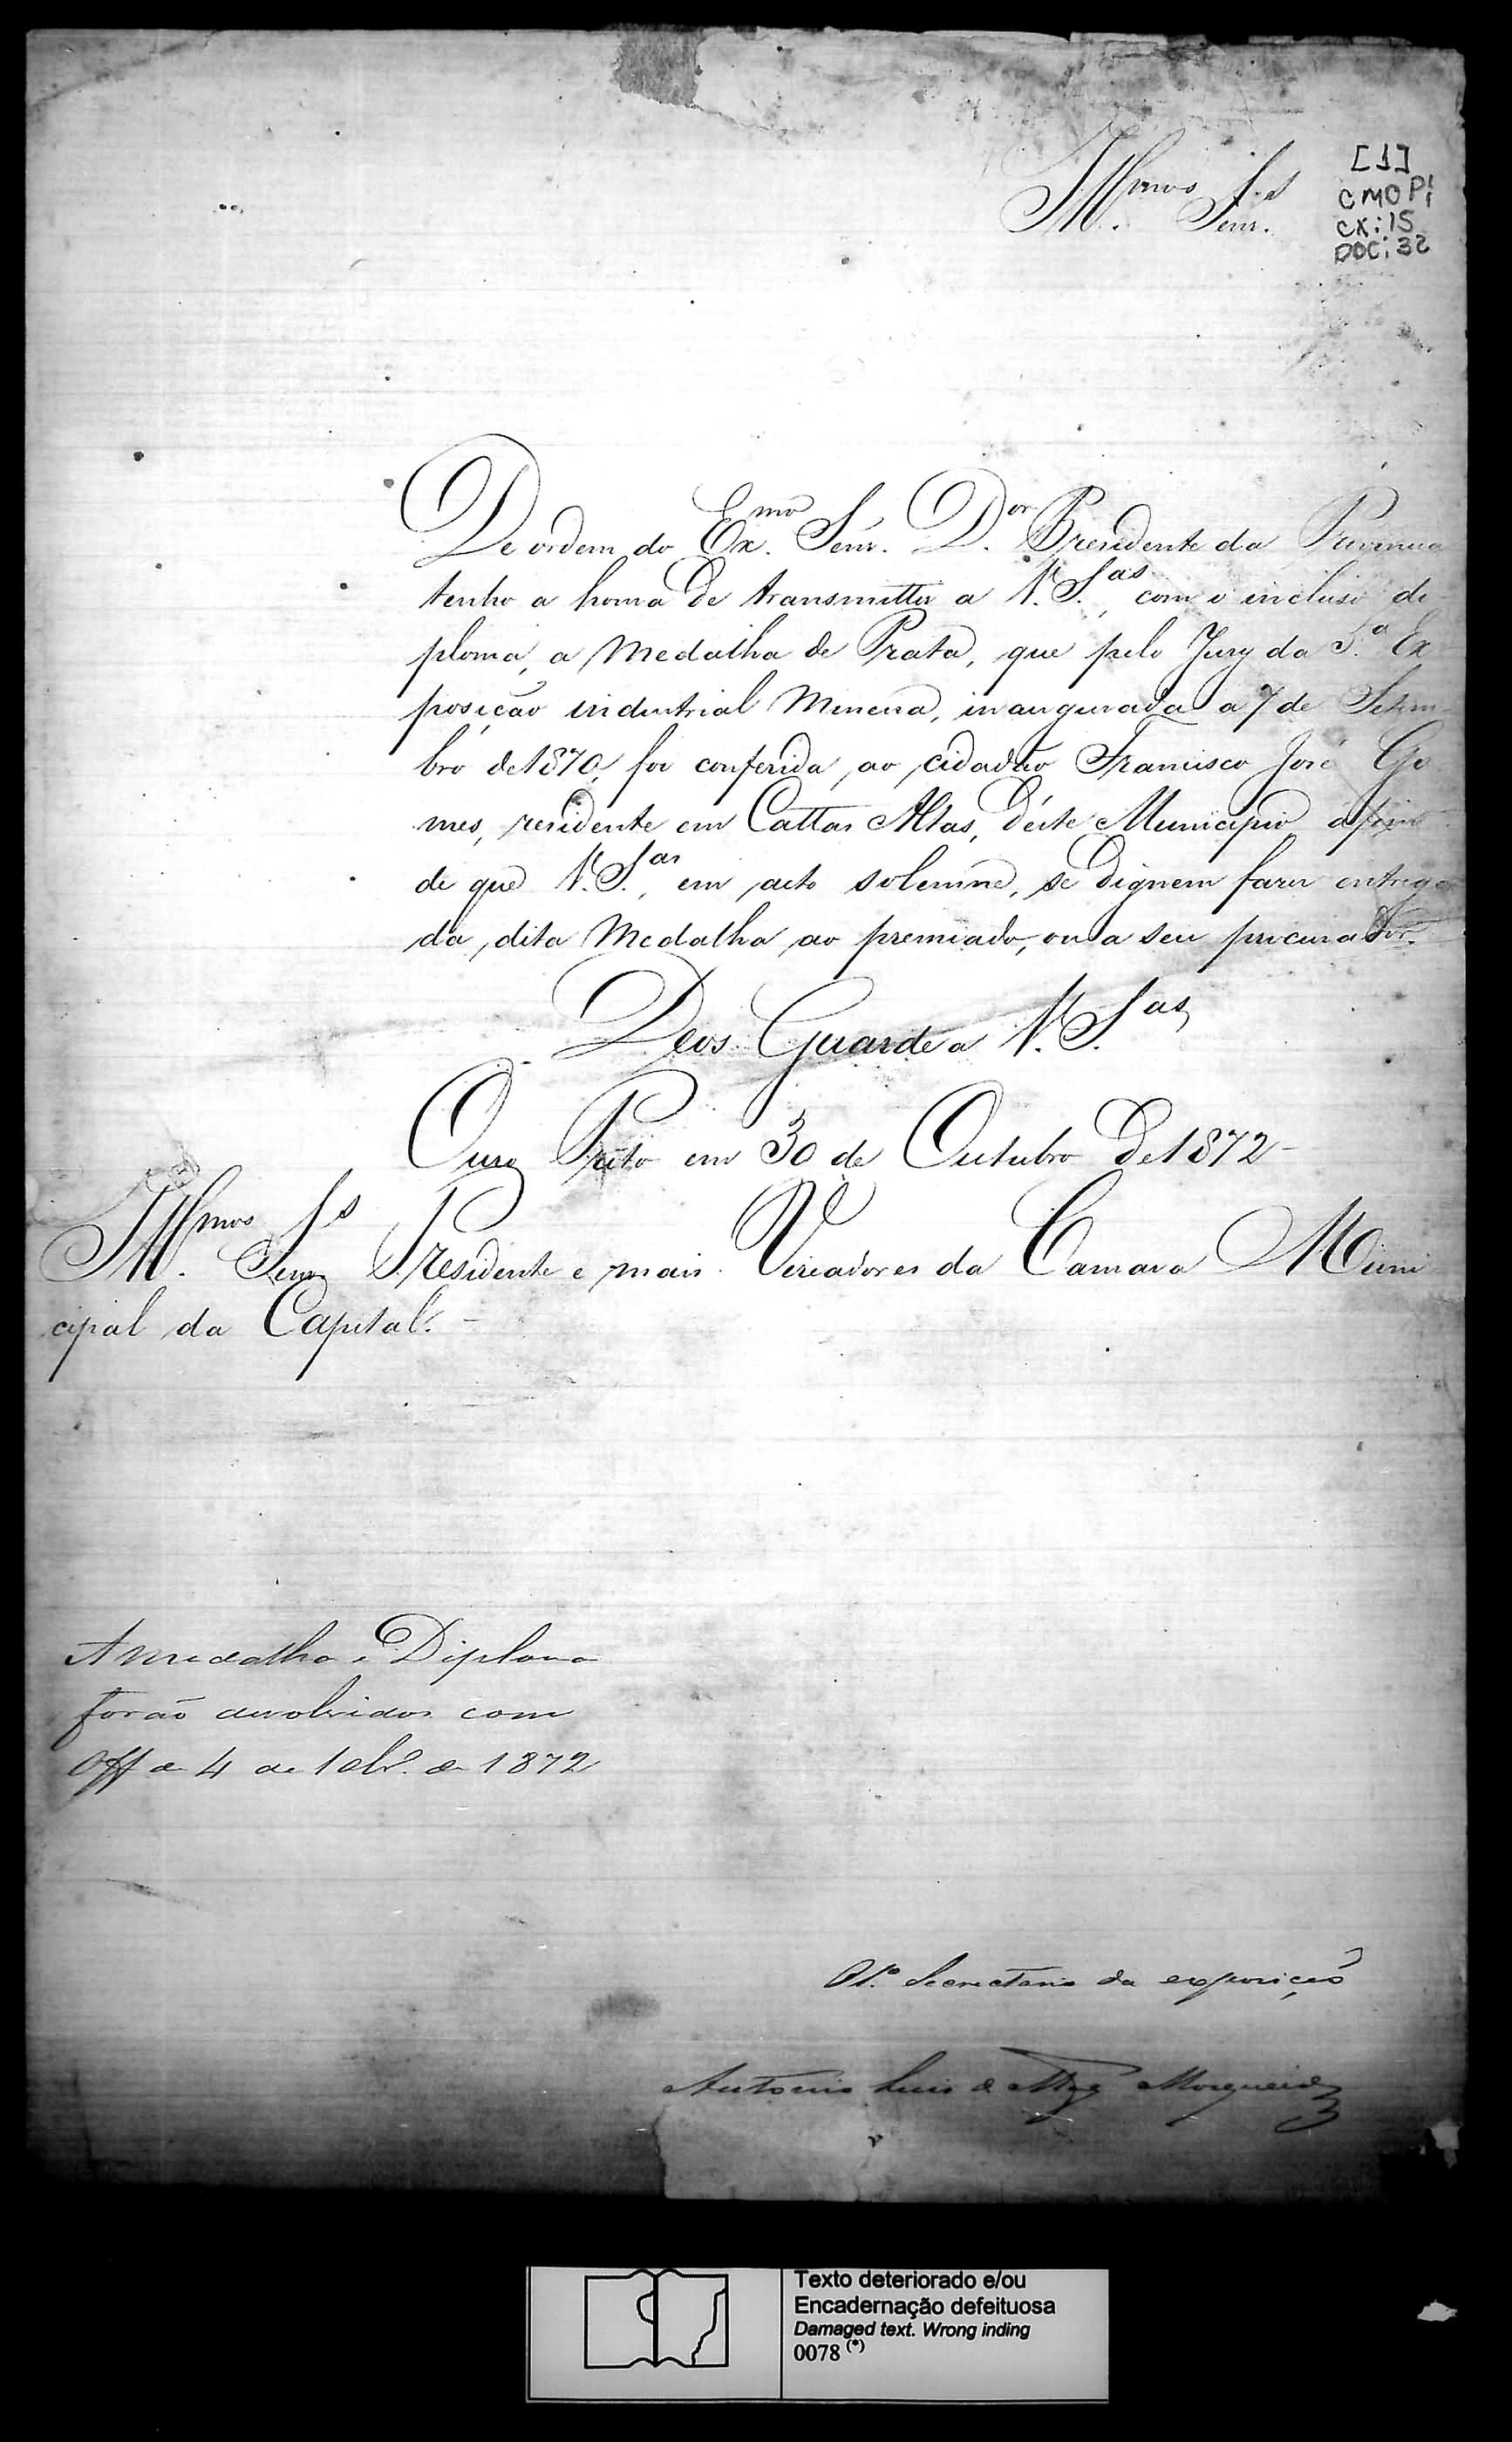 Illmos Srs
Senr.
[1]
CMOP;
CX: 15
DOC: 32
De ordem do Exmo. Senr. Dor. Presidente da Provincia
tenho a honra de transmitter a V. Sas., com o incluso di
ploma, a Medalha de Prata, que pelo Jury da 5.a Ex
posição industrial Mineira, inaugurada a 7 de Setem-
bro de 1870, foi conferida ao cidadão Francisco José Go
mes, residente em Cattas Altas, d'éste Municipio, afim
de que V. Sas., em acto solemne, se dignem fazer entrega
da dita Medalha ao premiado, ou a seu procurador.
Deos Guarde a V. Sas
Ouro Preto em 30 de Outubro de 1872-
Illmos Srs
Senr Presidente e mais Vereadores da Camara Muni
cipal da Capital. -
A medalha e Diploma
forão devolvidos com
Off de 4 de 10br.o de 1872
O 1.o Secretario da exposição
Antonio Luis de Mag Mosqueira
Texto deteriorado e/ou
Encadernação defeituosa
Damaged text. Wrong inding
0078 (*)